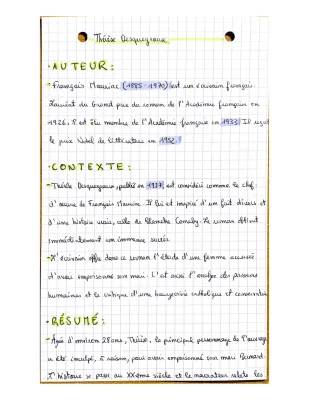 Thérèse Desqueyroux
·AUTEUR:
·François Mauriac (1885-1970) est un écrivain français.
Lauréat du Grand prix du roman de l'Académie française en
1926, il est élu membre de l'Académie française en 1933. Il reçoit
le prix Nobel de littérature en 1952.
·CONTEXTE:
·Thérèse Desqueyroux, publié en 1927, est considéré comme le chef
d'œuvre de François Mauriac. Il fut inspiré d'un fait divers et
d'une histoire vraie, celle de Blanche Canaby. Le roman obtient
immédiatement un immense succès.
·L'écrivain offre dans ce roman l'étude d'une femme accusée
d'avoir empoisonné son mari. C'est aussi l'analyse des passions
humaines et la critique d'une bourgeoisie catholique et conservatrice
·RÉSUMÉ:
·Agée d'environ 28 ans, Thérèse, la principale personnage de Mauriac
a été inculpé, à raison, pour avoir empoisonné son mari Bernard.
L'histoire se passe au XXème siècle et le narrateur relate les